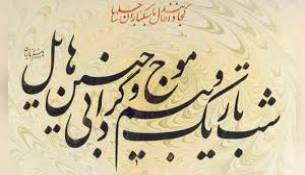 کجا دانند حال ما سبکباران ساحلها
شب تاریک و بیم موج و گردابی چنین هایل